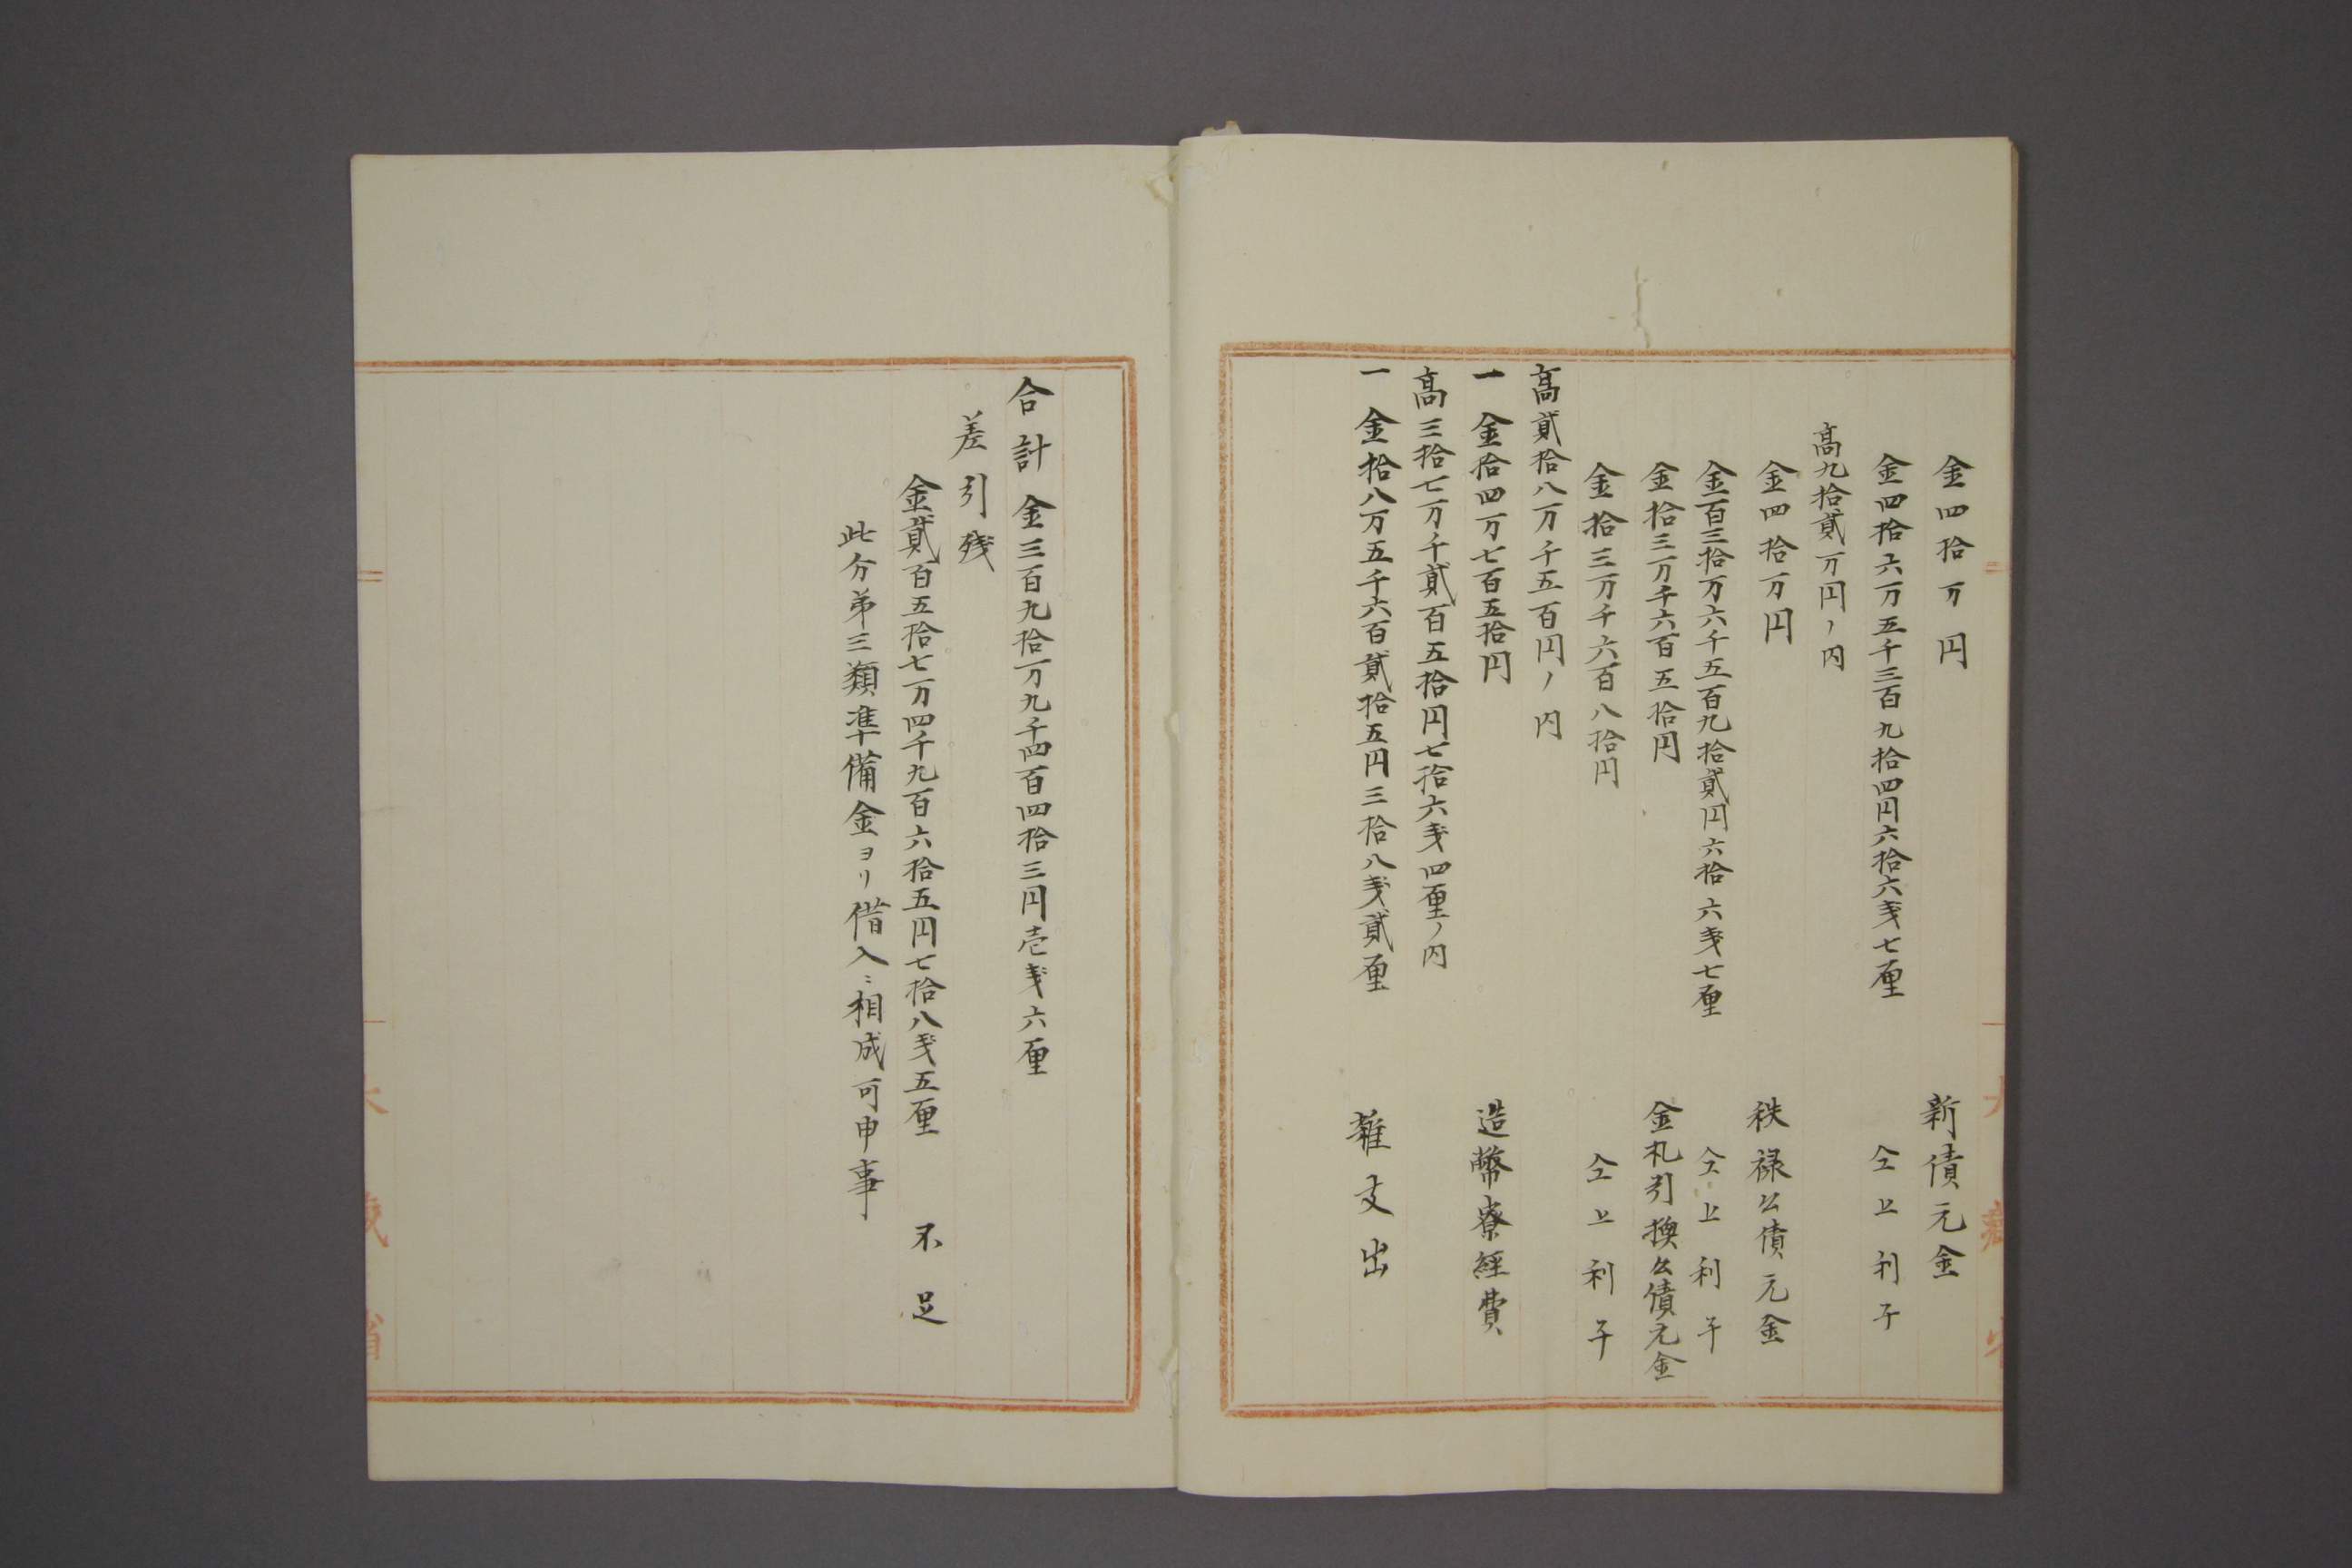 金四拾万円　新債元金
金四拾六万五千三百九拾四円六拾六戔七厘　仝上利子
高九拾貳万円ノ内
金四拾万円　秩禄公債元金
金百三拾万六千五百九拾貳円六拾六戔七厘　仝上利子
金拾三万千六百五拾円　金札引換公債元金
金拾三万千六百八拾円　仝上利子
高貳拾八万千五百円ノ内
一金拾四万七百五拾円　造幣寮経費
高三拾七万千貳百五拾円七拾六戔四厘ノ内
一金拾八万五千六百貳拾五円三拾八戔貳厘　雑支出
合計金三百九拾万九千四百四拾三円壱戔六厘
差引残
金貳百五拾七万四千九百六拾五円七拾八戔五厘　不足
此分第三類準備金ヨリ借入ニ相成可申事
大蔵省